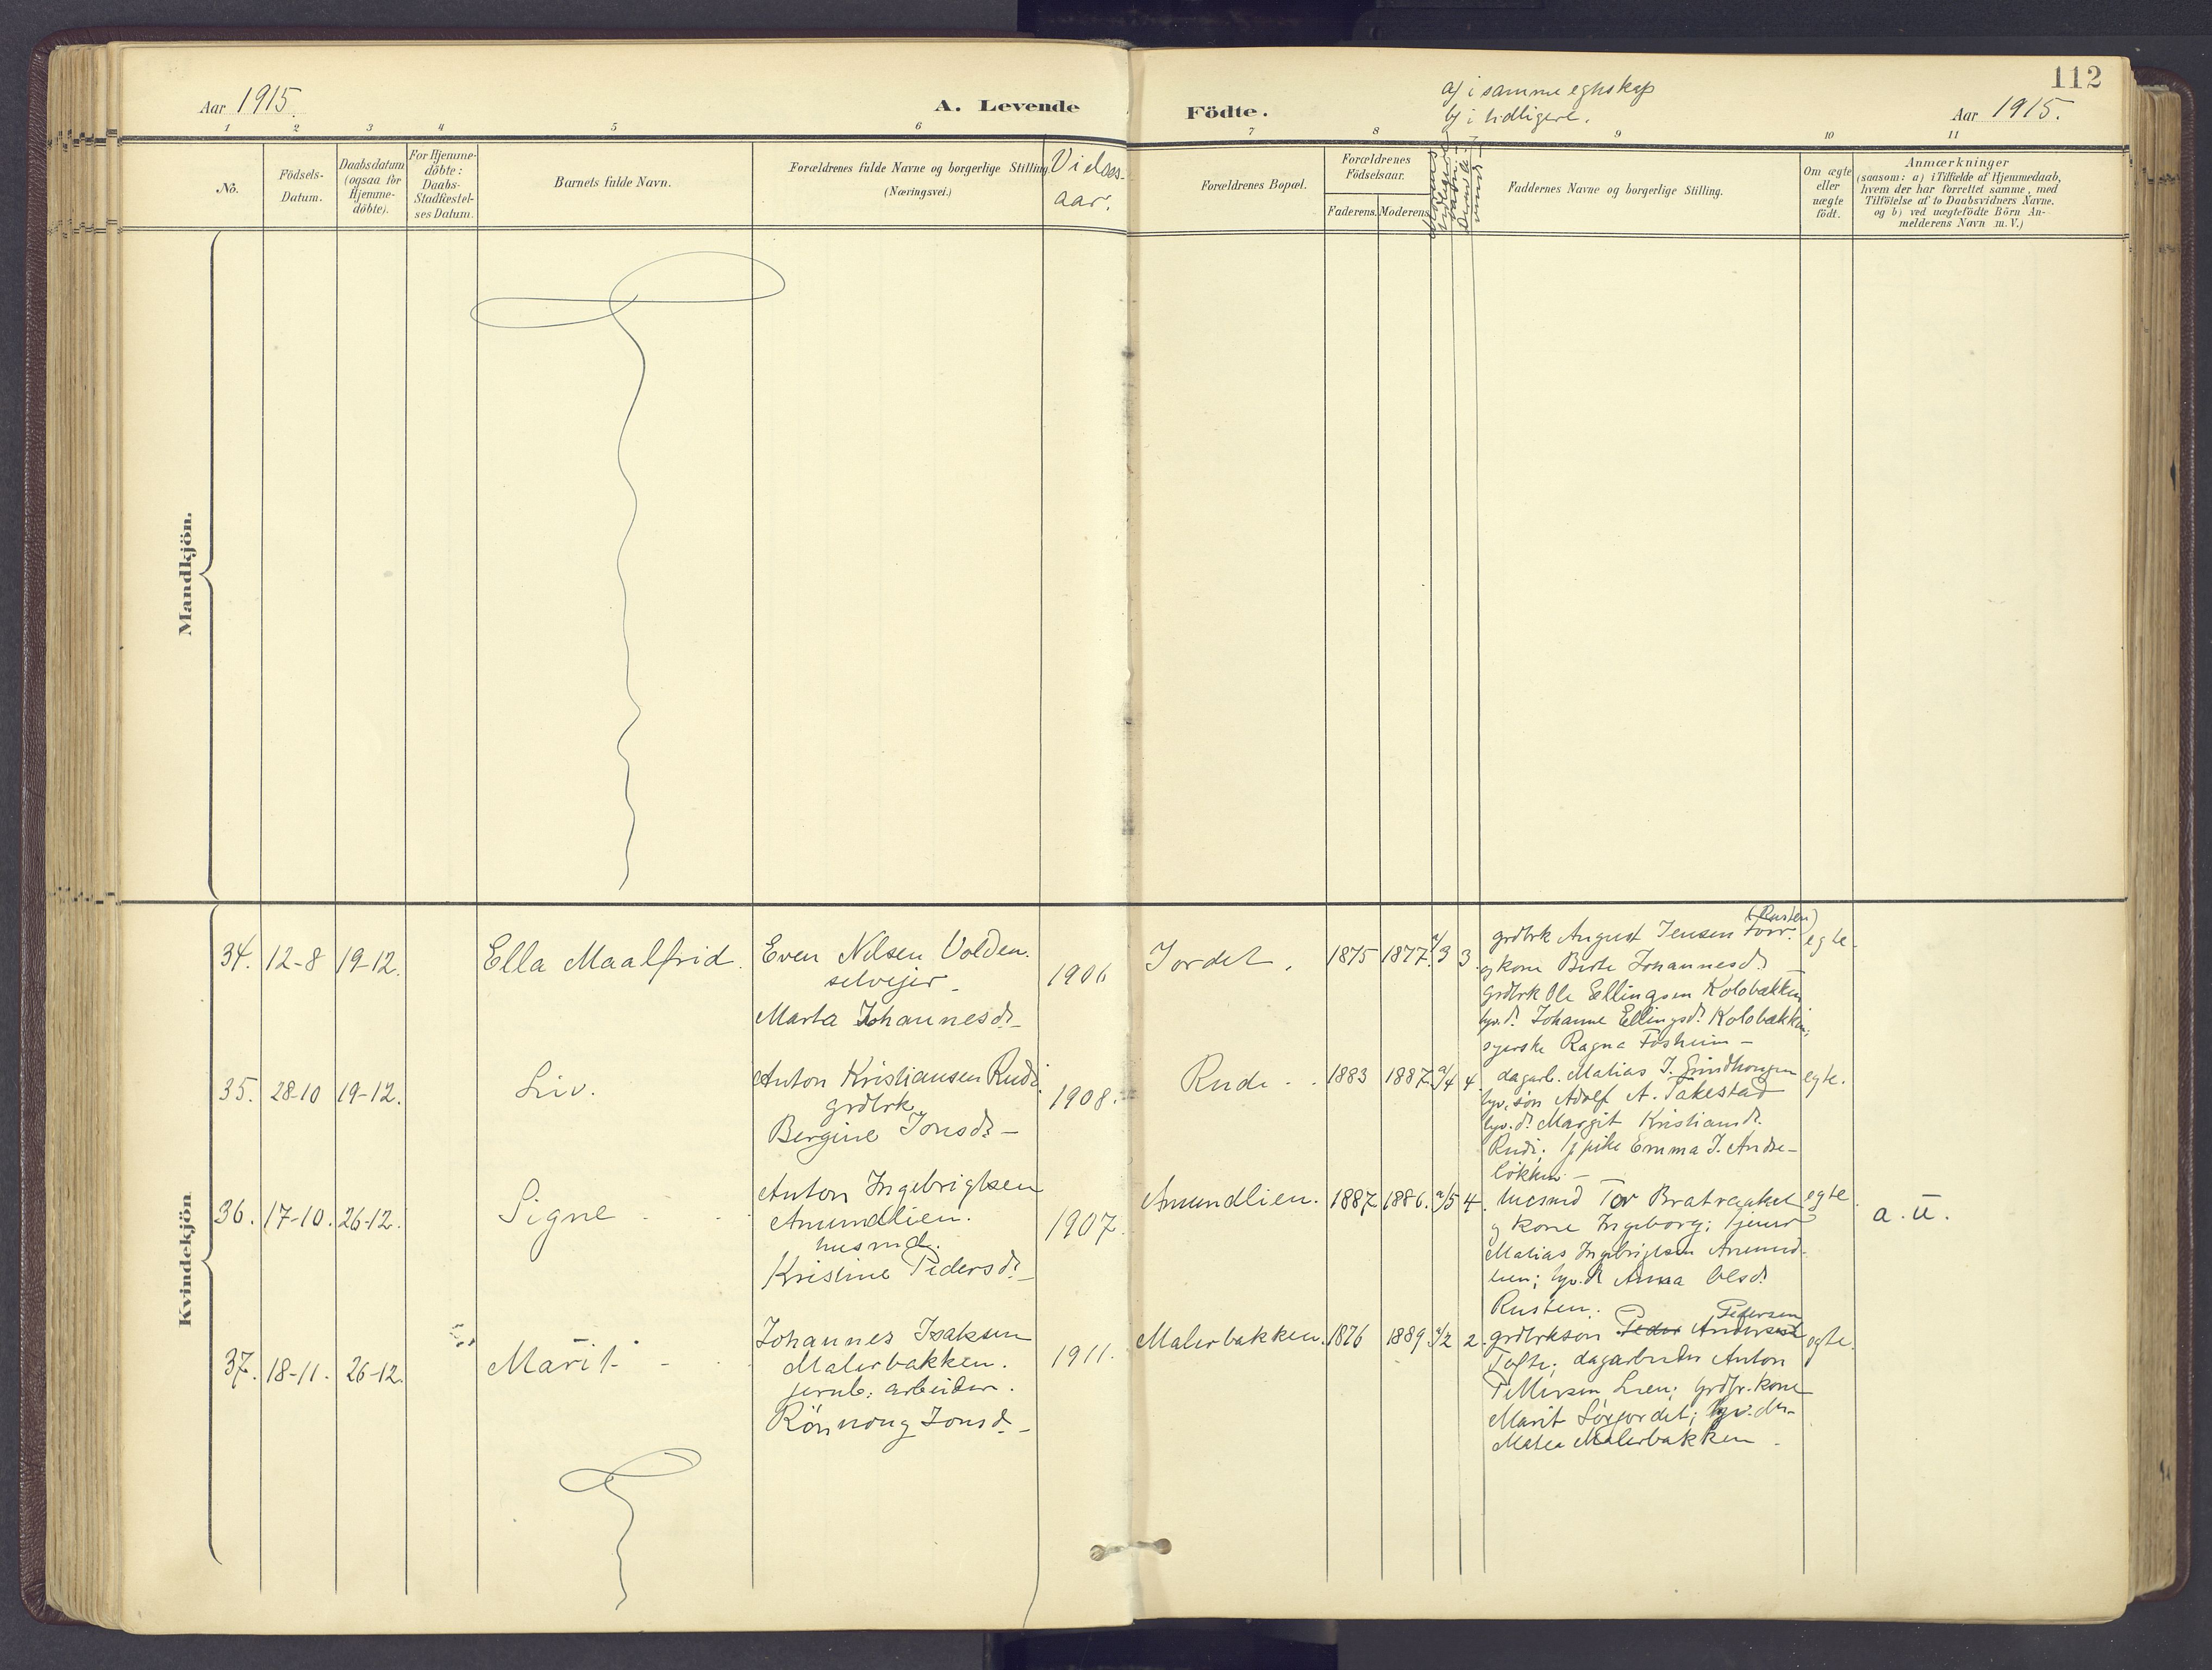 112
Aar 1915.
A. Levende
Födte.
a) i samme egteskap
b) i tidligere.
Aar 1915.
1 2 3 4 5 6 7 8 9 10 11
No.
Födsels-
Datum.
Daabsdatum
(ogsaa for
Hjemme-
döbte).
For Hjemme-
döbte:
Daabs-
Stadfæstel-
ses Datum.
Barnets fulde Navn.
Forældrenes fulde Navne og borgerlige Stilling
(Næringsvei.)
Vielses-
aar.
Forældrenes Bopæl.
Forældrenes
Födselsaar.
Faderens. Moderens.
Faddernes Navne og borgerlige Stilling.
Om ægte
eller
uægte
födt.
Anmærkninger
(saasom: a) i Tilfælde af Hjemmedaab,
hvem der har forrettet samme, med
Tilföielse af to Daabsvidners Navne.
og b) ved uægtefödte Börn An-
melderens Navn m. V.)
Mandkjön.
Kvindekjön
34. 12-8 19-12. Ella Maalfrid.
Even Nilsen Volden.
selvejer
Marta Johannesd.
1906
Jordet.
1875 1877. a/3 3
(Rusten)
grdbrk August Jensen
og kone Berte Johannesd.
grdbrk Ole Ellingsen Kolobakken
hjv. d. Johanne Ellingsd. Kolobakken,
syerske Ragna Fosheim -
egte.
35. 28-10 19-12. Liv.
Anton Kristiansen Rudi
grdbrk.
Bergine Jonsd. -
1908.
Rudi
1883 1887. a/4 4
dagarb. Matias J.
hjv. søn Adolf A. Takestad
hjv. d. Margit Kristiansd.
Rudi; tj pike Emma J. Andre-
løkken -
egte.
36. 17-10. 26-12. Signe
Anton Ingebrigtsen
Amundlien.
husmd.
Kristine Pedersd. -
1907.
Amundlien.
1887 1886. a/5 4.
husmd Tor
og kone Ingeborg; tjener
Matias Ingebrigtsen Amund-
lien; hjv. d. Anna Olsd.
Rusten.
egte.
a. u.
37. 18-11. 26-12. Marit
Johannes Isaksen
Malerbakken.
jernb. arbeider.
Rönnoug Jonsd. -
1911.
Malerbakken.
1876 1889 a/2 2.
Pedersen
grdbrksøn Peder Andersen
Tofte; dagarbeider Anton
Pettersen Lien; grdbr. kone
Marit Sørjordet; hjv. dtr.
Matea Malerbakken.
egte.